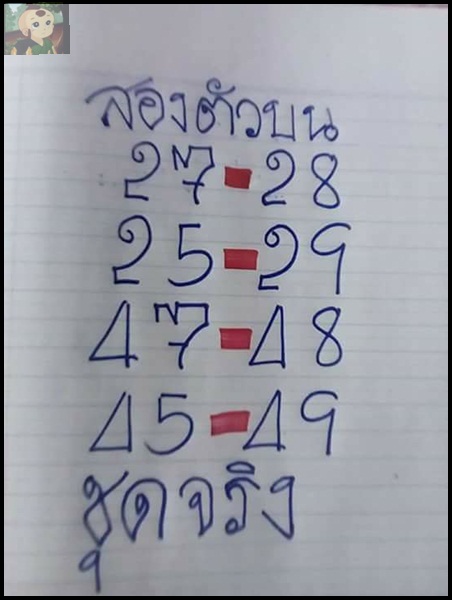 สองตัวบน
27-28
25-29
47-48
45-49
ชุดจริง